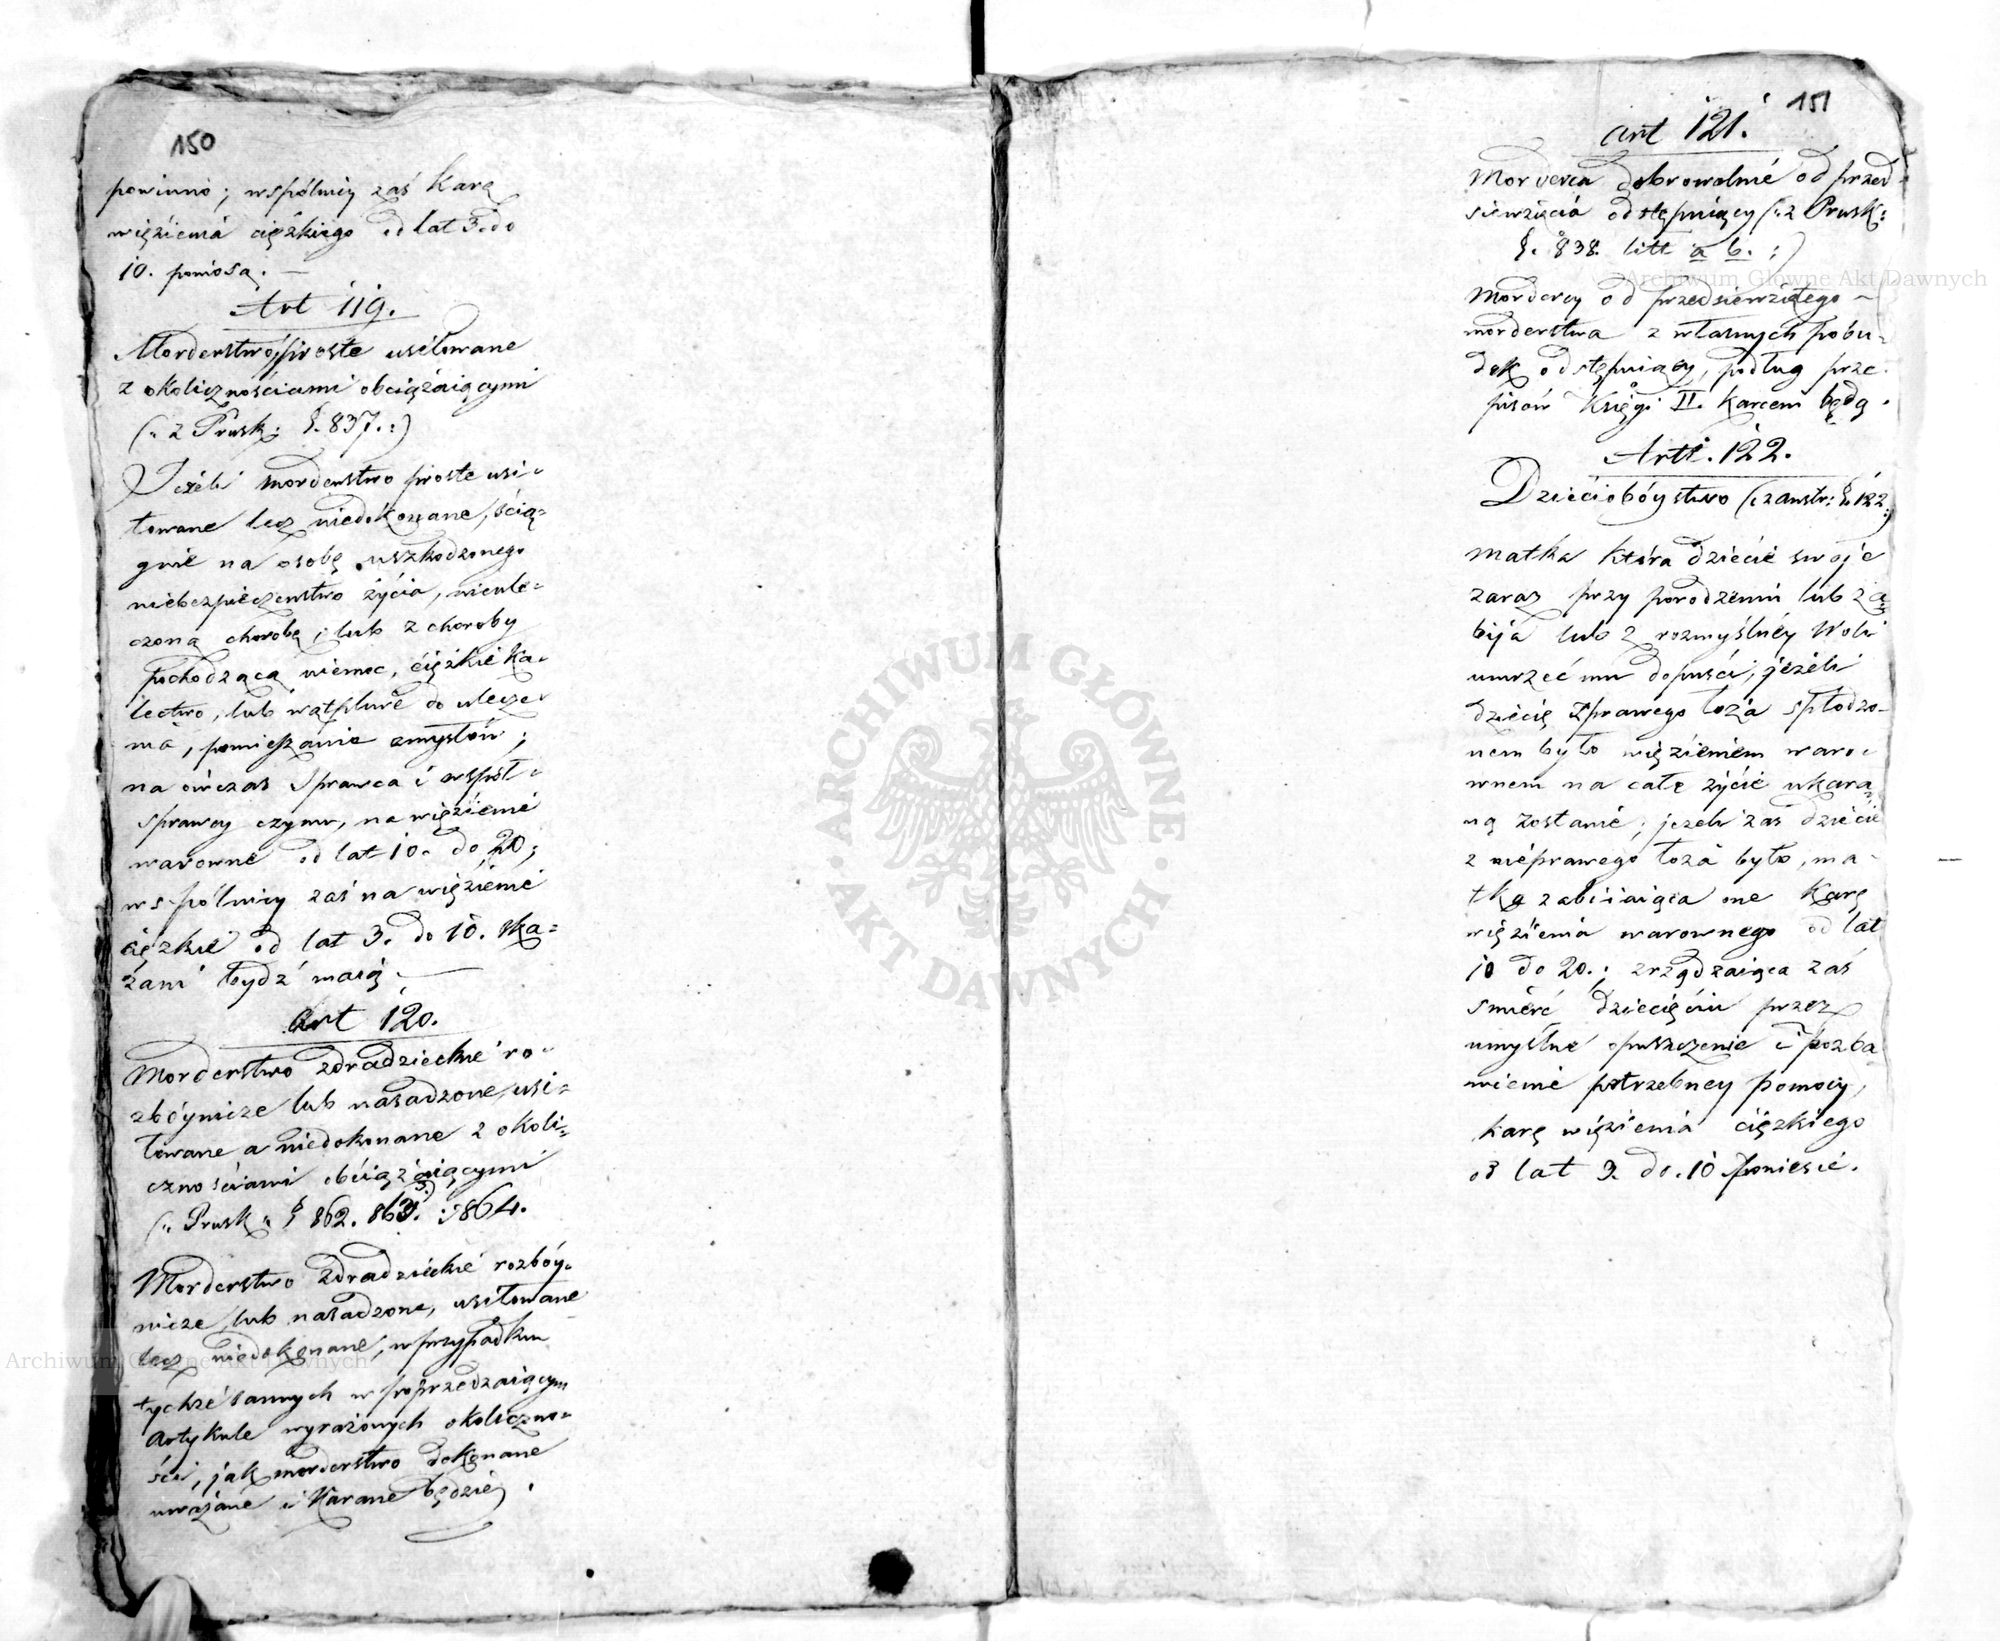 150
powinno; wspólnicy zaś karę
więzienia ciężkiego od lat 3. do
10. poniosą. —
Art 119.
Morderstwo proste usiłowane
z okolicznościami obciążaiącymi
(: z Prusk: §. 837. :)
Jeżeli morderstwo proste usi-
łowane lecz niedokonane, ścią-
gnie na osobę uszkodzonego
niebezpieczeństwo życia, nieule-
czoną chorobę, lub z choroby
pochodzącą niemoc, ciężkie ka-
lectwo, lub wątpliwe do ulecze-
nia, pomieszanie zmysłów;
na ówczas sprawca i współ-
sprawcy czynu, na więzienie
warowne od lat 10. do 20;
wspólnicy zaś na więzienie
ciężkie od lat 3. do 10. ska-
zani bydź maią. —
Art 120.
Morderstwo zdradzieckie ro-
zbóynicze lub nasadzone, usi-
łowane a niedokonane z okoli-
cznościami obciążaiącymi
(: Prusk: § 862. 863. 864.
Morderstwo zdradzieckie rozbóy-
nicze, lub nasadzone, usiłowane
lecz niedokonane, w przypadku
tychże samych w poprzedzaiącym
Artykule wyrażonych okoliczno-
ści, jak morderstwo dokonane
uważane i karane będzie.
151
art 121.
Morderca dobrowolnie od przed-
siewzięcia odstępuiący (: z Prusk:
§. 838. litt a b. :)
Mordercy od przedsiewziętego —
morderstwa z własnych pobu-
dek odstępuiący, podług prze-
pisów Księgi II. karceni będą.
Art. 122.
Dzieciobóystwo (: z austr: §. 122 :)
Matka która dziecie swoje
zaraz przy porodzeniu lub za-
bija lub z rozmyślney woli
umrzeć mu dopuści, jeżeli
dziecię z prawego łoża spłodzo-
nem było więzieniem waro-
wnem na całe życie ukara-
ną zostanie; jeżeli zaś dziecie
z nieprawego łoża było, ma-
tka zabiiaiąca one karę
więzienia warownego od lat
10 do 20.; zrządzaiąca zaś
śmierć dziecięciu przez
umyślne opuszczenie i pozba-
wienie potrzebney pomocy,
karę więzienia ciężkiego
od lat 3. do. 10 poniesie.
Archiwum Główne Akt Dawnych
ARCHIWUM GŁÓWNE · AKT DAWNYCH ·
Archiwum Główne Akt Dawnych